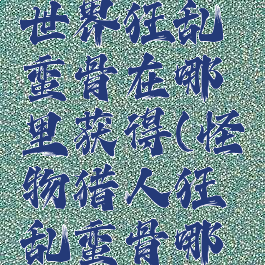 世界狂乱
蛮骨在哪
里获得(怪
物猎人狂
乱蛮骨哪